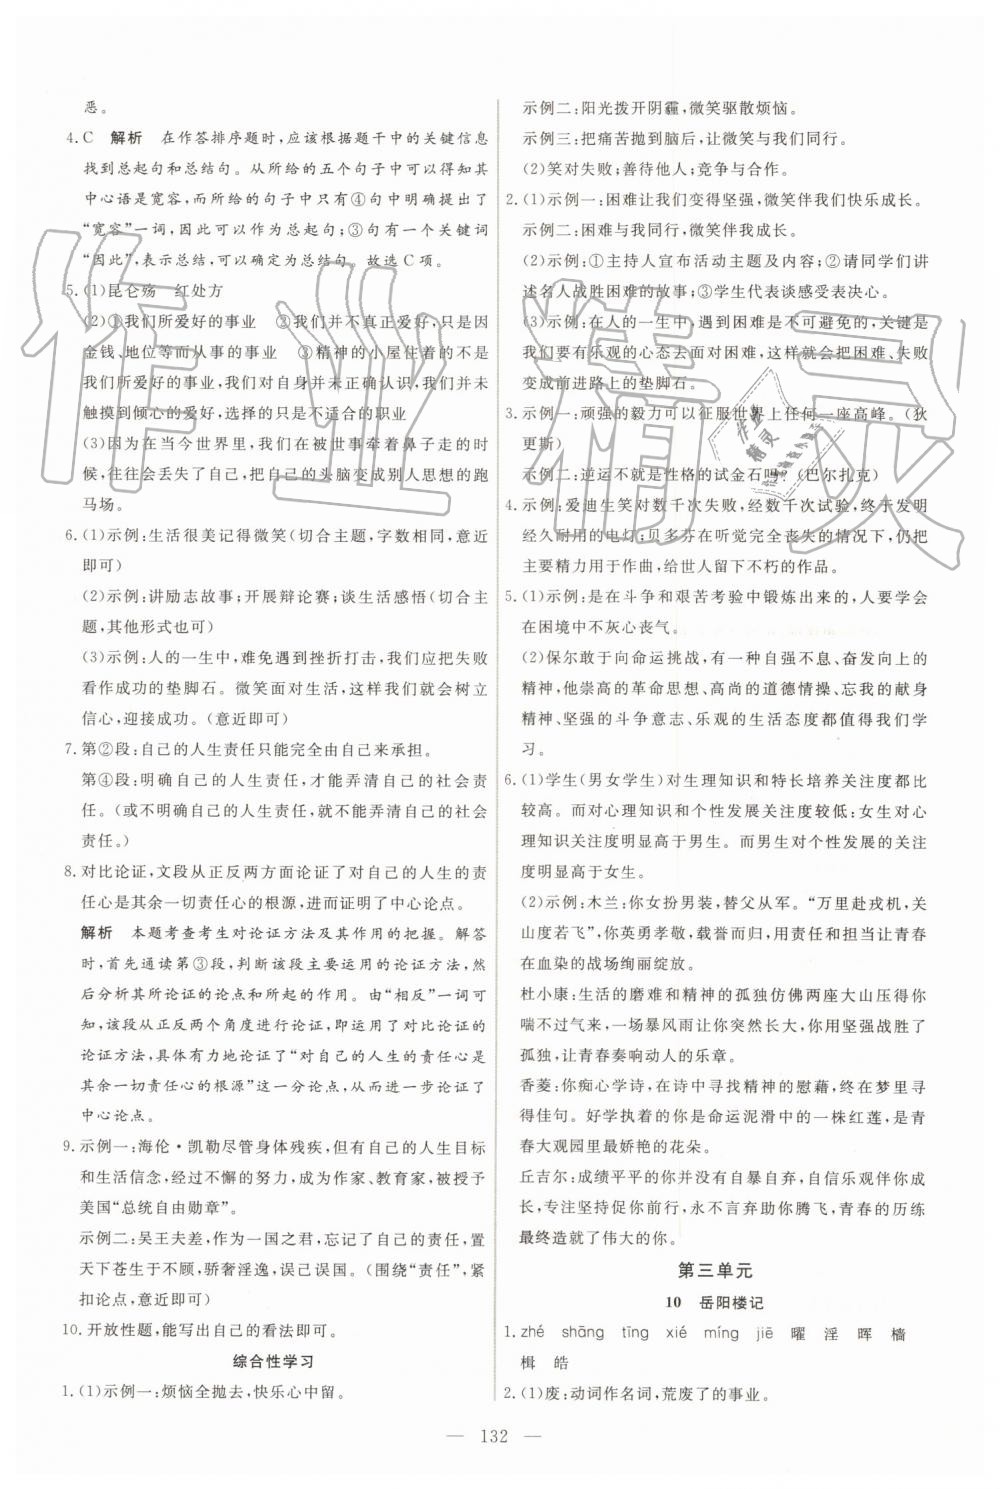 恶。
4. C　解析　在作答排序题时,应该根据题干中的关键信息
找到总起句和总结句。从所给的五个句子中可以得出其
中心语是宽容,而所给的句子中只有④句中明确提出了
“宽容”一词,因此可以作为总起句;③句有一个关键词
“因此”,表示总结,可以确定为总结句。故选C项。
5. (1)昆仑殇　红处方
(2)①我们所爱好的事业　②我们并不真正爱好,只是因
金钱、地位等而从事的事业　③精神的小屋住着的不是
我们所爱好的事业,我们对自身并未正确认识,我们并未
触摸到倾心的爱好,选择的只是不适合的职业
(3)因为在当今世界里,我们在被世事牵着鼻子走的时
候,往往会丢失了自己,把自己的头脑变成别人思想的跑
马场。
6. (1)示例:生活很美记得微笑(切合主题,字数相同,意近
即可)
(2)示例:讲励志故事;开展辩论赛;谈生活感悟(切合主
题,其他形式也可)
(3)示例:人的一生中,难免遇到挫折打击,我们应把失败
看作成功的垫脚石。微笑面对生活,这样我们就会树立
信心,迎接成功。(意近即可)
7. 第②段:自己的人生责任只能完全由自己来承担。
第④段:明确自己的人生责任,才能弄清自己的社会责
任。(或不明确自己的人生责任,就不能弄清自己的社会
责任。)
8. 对比论证,文段从正反两方面论证了对自己的人生的责
任心是其余一切责任心的根源,进而证明了中心论点。
解析　本题考查考生对论证方法及其作用的把握。解答
时,首先通读第③段,判断该段主要运用的论证方法,然
后分析其所论证的论点和所起的作用。由“相反”一词可
知,该段从正反两个角度进行论证,即运用了对比论证的
论证方法,具体有力地论证了“对自己的人生的责任心是
其余一切责任心的根源”这一分论点,从而进一步论证了
中心论点。
9. 示例一:海伦·凯勒尽管身体残疾,但有自己的人生目标
和生活信念,经过不懈的努力,成为作家、教育家,被授予
美国“总统自由勋章”。
示例二:吴王夫差,作为一国之君,忘记了自己的责任,置
天下苍生于不顾,骄奢淫逸,误己误国。(围绕“责任”,紧
扣论点,意近即可)
10. 开放性题,能写出自己的看法即可。
综合性学习
1. (1)示例一:烦恼全抛去,快乐心中留。
示例二:阳光拨开阴霾,微笑驱散烦恼。
示例三:把痛苦抛到脑后,让微笑与我们同行。
(2)笑对失败;善待他人;竞争与合作。
2. (1)示例一:困难让我们变得坚强,微笑伴我们快乐成长。
示例二:困难与我同行,微笑伴我成长。
(2)示例:①主持人宣布活动主题及内容;②请同学们讲
述名人战胜困难的故事;③学生代表谈感受表决心。
(3)示例:在人的一生中,遇到困难是不可避免的,关键是
我们要有乐观的心态去面对困难,这样就会把困难、失败
变成前进路上的垫脚石。
3. 示例一:顽强的毅力可以征服世界上任何一座高峰。(狄
更斯)
示例二:逆运不就是性格的试金石吗?(巴尔扎克)
4. 示例:爱迪生笑对数千次失败,经数千次试验,终于发明
经久耐用的电灯;贝多芬在听觉完全丧失的情况下,仍把
主要精力用于作曲,给世人留下不朽的作品。
5. (1)示例:是在斗争和艰苦考验中锻炼出来的,人要学会
在困境中不灰心丧气。
(2)保尔敢于向命运挑战,有一种自强不息、奋发向上的
精神,他崇高的革命思想、高尚的道德情操、忘我的献身
精神、坚强的斗争意志、乐观的生活态度都值得我们学
习。
6. (1)学生(男女学生)对生理知识和特长培养关注度都比
较高。而对心理知识和个性发展关注度较低:女生对心
理知识关注度明显高于男生。而男生对个性发展的关注
度明显高于女生。
(2)示例:木兰:你女扮男装,替父从军。“万里赴戎机,关
山度若飞”,你英勇孝敬,载誉而归。责任和担当让青春
在血染的战场绚丽绽放。
杜小康:生活的磨难和精神的孤独仿佛两座大山压得你
喘不过气来,一场暴风雨让你突然长大,你用坚强战胜了
孤独,让青春奏响动人的乐章。
香菱:你痴心学诗,在诗中寻找精神的慰藉,终在梦里寻
得佳句。好学执着的你是命运泥滑中的一株红莲,是青
春大观园里最娇艳的花朵。
丘吉尔:成绩平平的你并没有自暴自弃,自信乐观伴你成
长,专注坚持促你前行,永不言弃助你腾飞,青春的历练
最终造就了伟大的你。
第三单元
10　岳阳楼记
1. zhé　shāng　tīng　xié　míng　jiē　曜　淫　晖　樯
楫　皓
2. (1)废:动词作名词,荒废了的事业。
— 132 —
作业精灵